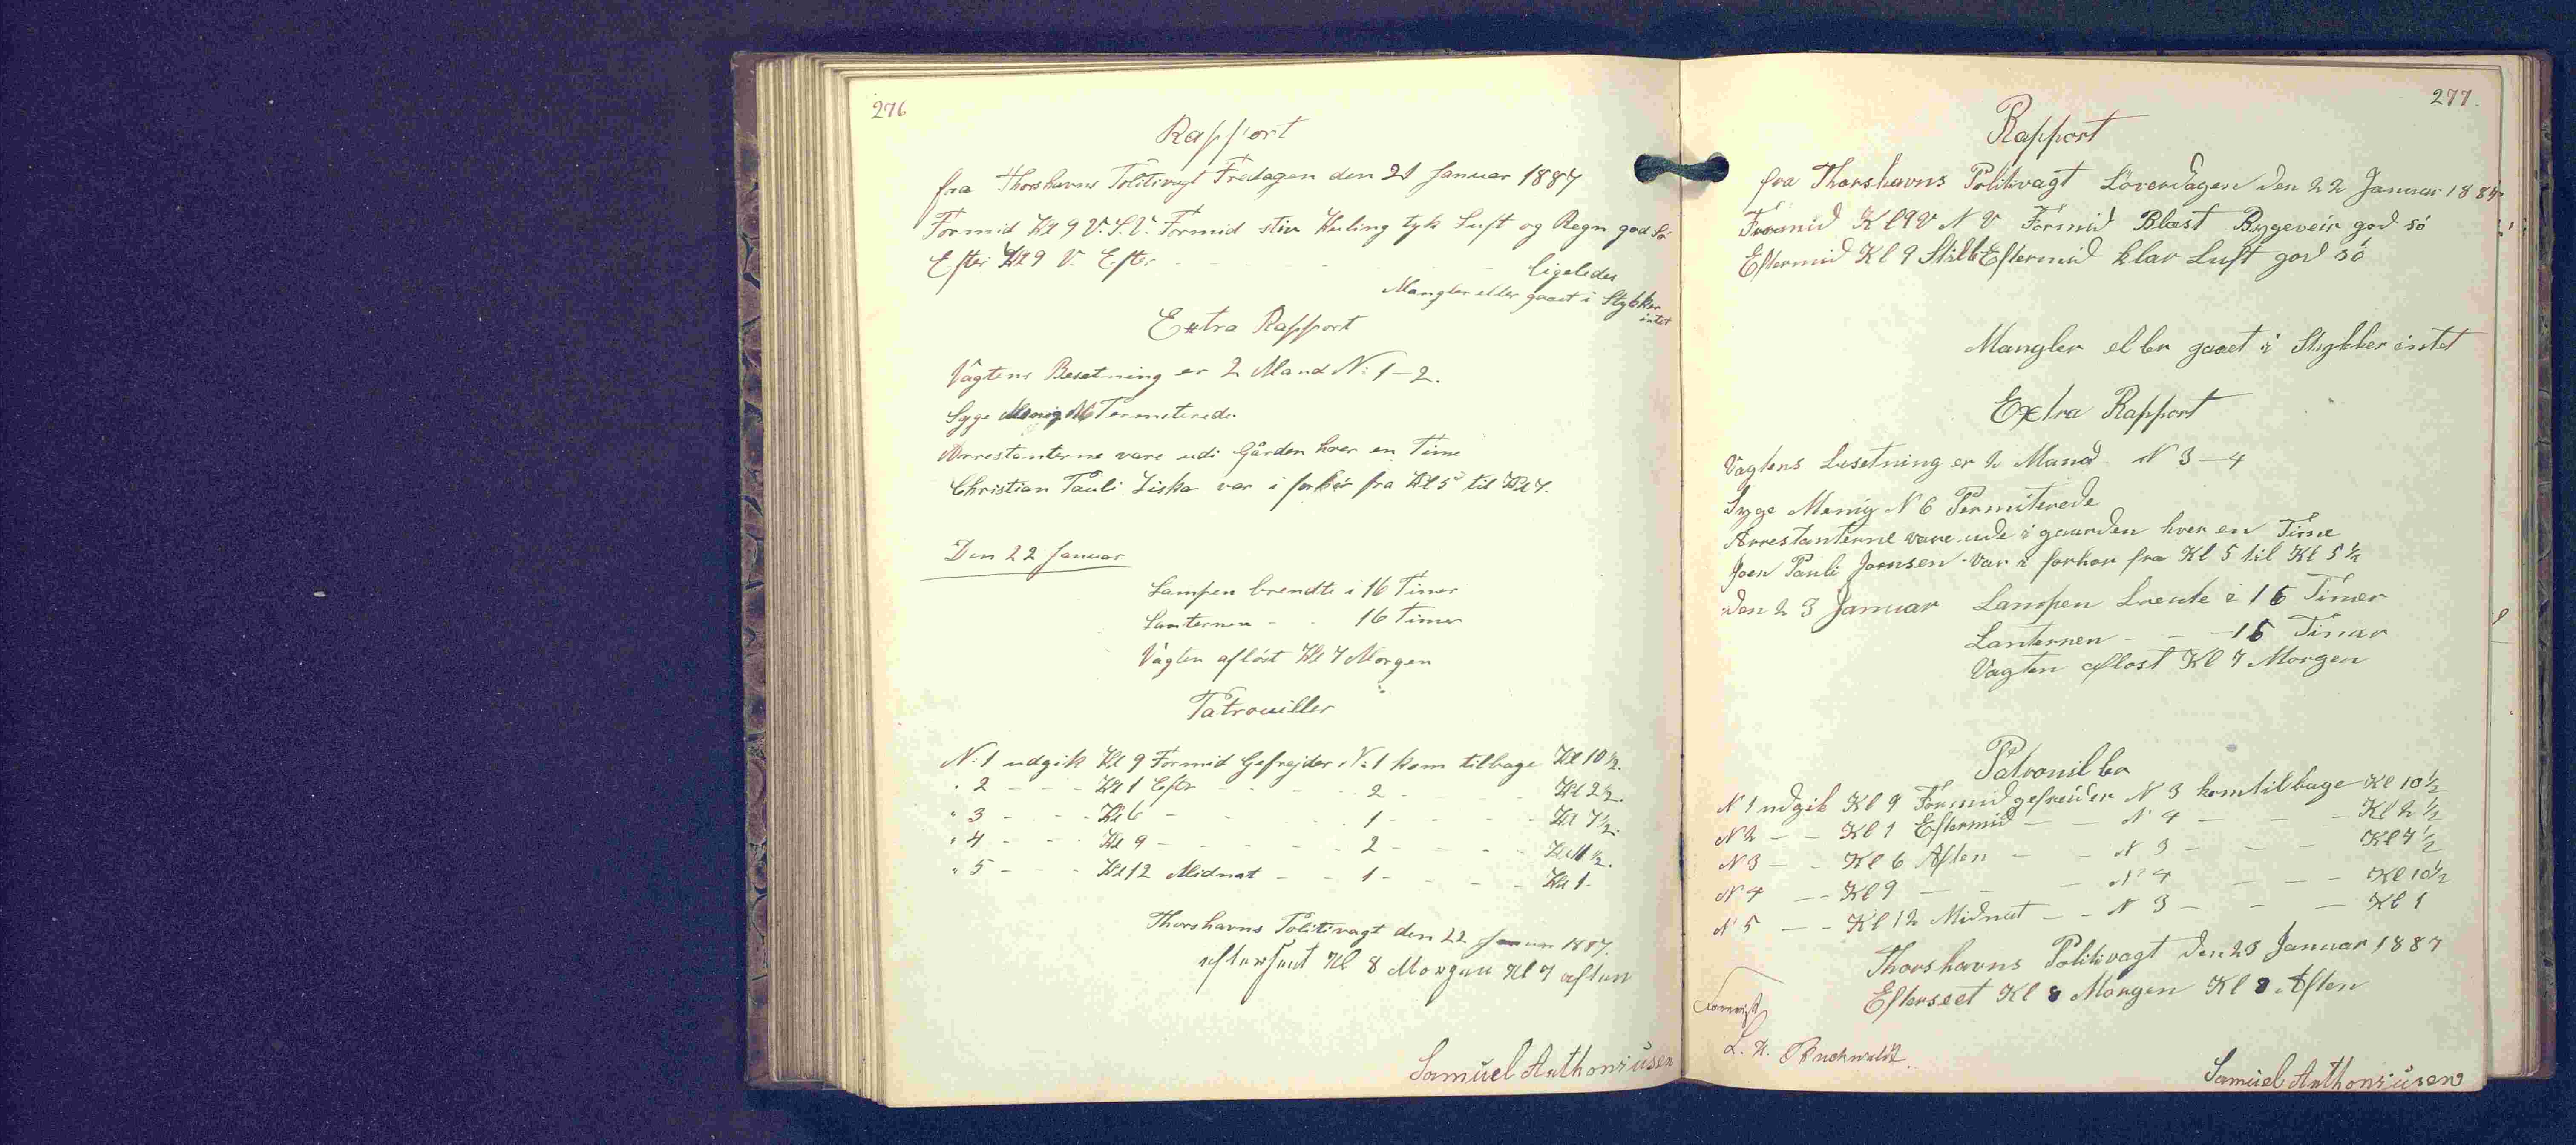 276
Rapport
fra Thorshavns Politivagt Fredagen den 21 Januar 1887
Formid Kl 9 V.S.V. Formid stiv Kuling tyk Luft og Regn god Sö
Efter Kl 9 V. Efter - - - - ligeledes
Mangler eller gaaet i Stykker
intet
Extra Rapport
Vagtens Besetning er 2 Mand N: 1-2.
Syge Menig N6 Permeterede
Arrestanterne vare udi Gården hver en Time
Christian Pauli Ziska var i forhör fra Kl 5 til Kl 7.
Den 22 Januar
Lampen brendte i 16 Timer
Lanternen - - 16 Timer
Vagten aflöst Kl 7 Morgen
Patrouiller
N: 1 udgik Kl 9 Formid Gefrejder N: 1 kom tilbage Kl 10½.
" 2 - - - Kl 1 Eftr - - - 2 - - - Kl 2½.
" 3 - - - Kl 6 - - - 1 - - - Kl 7½.
" 4 - - - Kl 9 - - - 2 - - - Kl 11½.
" 5 - - - Kl 12 Midnat - - 1 - - - Kl 1.
Thorshavns Politivagt den 22 Januar 1887.
efterseet Kl 8 Morgen Kl 7 aften
Samúel Anthoniúsen
277.
Rapport
fra Thorshavns Politivagt Löverdagen den 22 Januar 1887
Formid Kl 9 V N V Formid Blæst Bygeveir god só
Eftermid Kl 9 Stille Eftermid klar Luft god só
Mangler eller gaaet i Stykker intet
Extra Rapport
Vagtens Besetning er 2 Mand N 3-4
Syge Menig N 6 Permiterede
Arrestanterne vare ude i gaarden hver en Time
Joen Pauli Joensen var i forhor fra Kl 5 til Kl 5½
Den 23 Januar Lampen brente i 16 Timer
Lanternen - - 16 Timer
Vagten aflost Kl 7 Morgen
Patrouiller
N 1 udgik Kl 9 Formid gefreider N 3 kom tilbage Kl 10½
N 2 - - Kl 1 Eftermid - - N 4 - - - Kl 2½
N 3 - - Kl 6 Aften - - N 3 - - - Kl 7½
N 4 - - Kl 9 - - - N 4 - - - Kl 10½
N 5 - - Kl 12 Midnat - - N 3 - - - Kl 1
Thorshavns Politivagt den 23 Januar 1887
Efterseet Kl 8 Morgen Kl 8 Aften
Forevist
L. H. Buchwaldt
Samúel Anthoniúsen